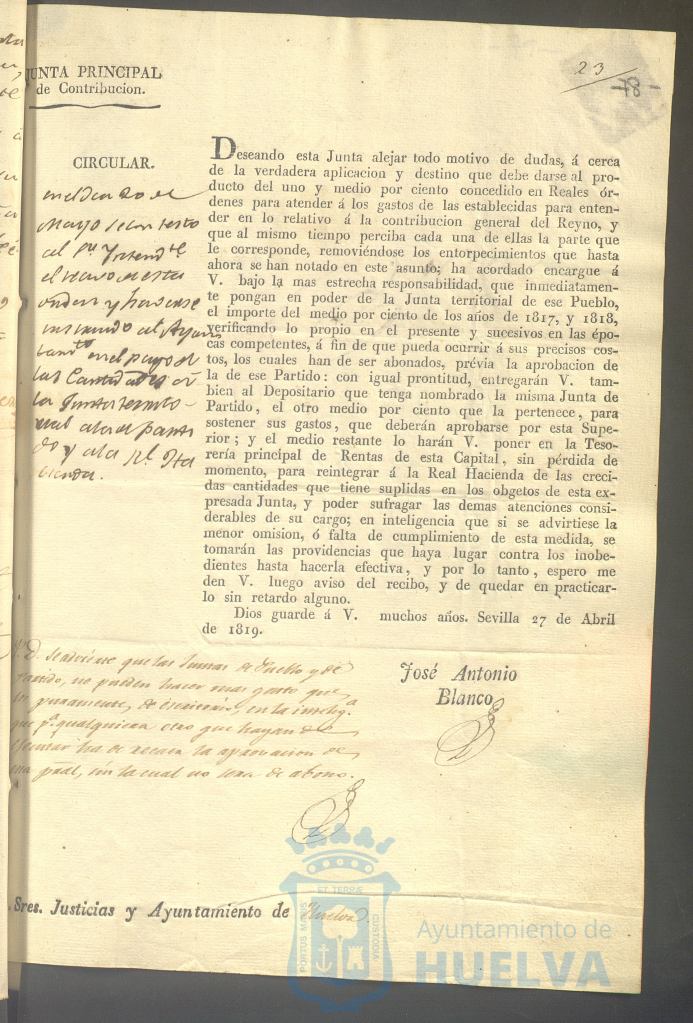 23
-78-
JUNTA PRINCIPAL
de Contribucion.
CIRCULAR.
en el dia 20 de
Mayo se contesto
al Sr. Yntendte
el recivo de esta
orden y haverse
instruido al Ayun
tamto en el pago de
las Cantidades á
la Junta territo-
rial a la del parti
do y a la Rl. Ha
cienda.
Deseando esta Junta alejar todo motivo de dudas, á cerca
de la verdadera aplicacion y destino que debe darse al pro-
ducto del uno y medio por ciento concedido en Reales ór-
denes para atender á los gastos de las establecidas para enten-
der en lo relativo á la contribucion general del Reyno, y
que al mismo tiempo perciba cada una de ellas la parte que
le corresponde, removiéndose los entorpecimientos que hasta
ahora se han notado en este asunto; ha acordado encargue á
V. bajo la mas estrecha responsabilidad, que inmediatamen-
te pongan en poder de la Junta territorial de ese Pueblo,
el importe del medio por ciento de los años de 1817, y 1818,
verificando lo propio en el presente y sucesivos en las épo-
cas competentes, á fin de que pueda ocurrir á sus precisos cos-
tos, los cuales han de ser abonados, prévia la aprobacion de
la de ese Partido: con igual prontitud, entregarán V. tam-
bien al Depositario que tenga nombrado la misma Junta de
Partido, el otro medio por ciento que la pertenece, para
sostener sus gastos, que deberán aprobarse por esta Supe-
rior; y el medio restante lo harán V. poner en la Teso-
rería principal de Rentas de esta Capital, sin pérdida de
momento, para reintegrar á la Real Hacienda de las creci-
das cantidades que tiene suplidas en los obgetos de esta ex-
presada Junta, y poder sufragar las demas atenciones consi-
derables de su cargo; en inteligencia que si se advirtiese la
menor omision, ó falta de cumplimiento de esta medida, se
tomarán las providencias que haya lugar contra los inobe-
dientes hasta hacerla efectiva, y por lo tanto, espero me
den V. luego aviso del recibo, y de quedar en practicar-
lo sin retardo alguno.
Dios guarde á V. muchos años. Sevilla 27 de Abril
de 1819.
José Antonio
Blanco
P. D. Se advierte que las Juntas de Pueblo y de
Partido, no pueden hacer mas gasto que
los puramente de escritorio, en la inteliga
que pa qualquiera otro que hayan de
efectuar ha de recaer la aprovacion de
esta pral, sin la cual no sera de abono.
Sres. Justicias y Ayuntamiento de Huelva.
PORTUS MARIS
ET TERRAE
CUSTODIA
Ayuntamiento de
HUELVA